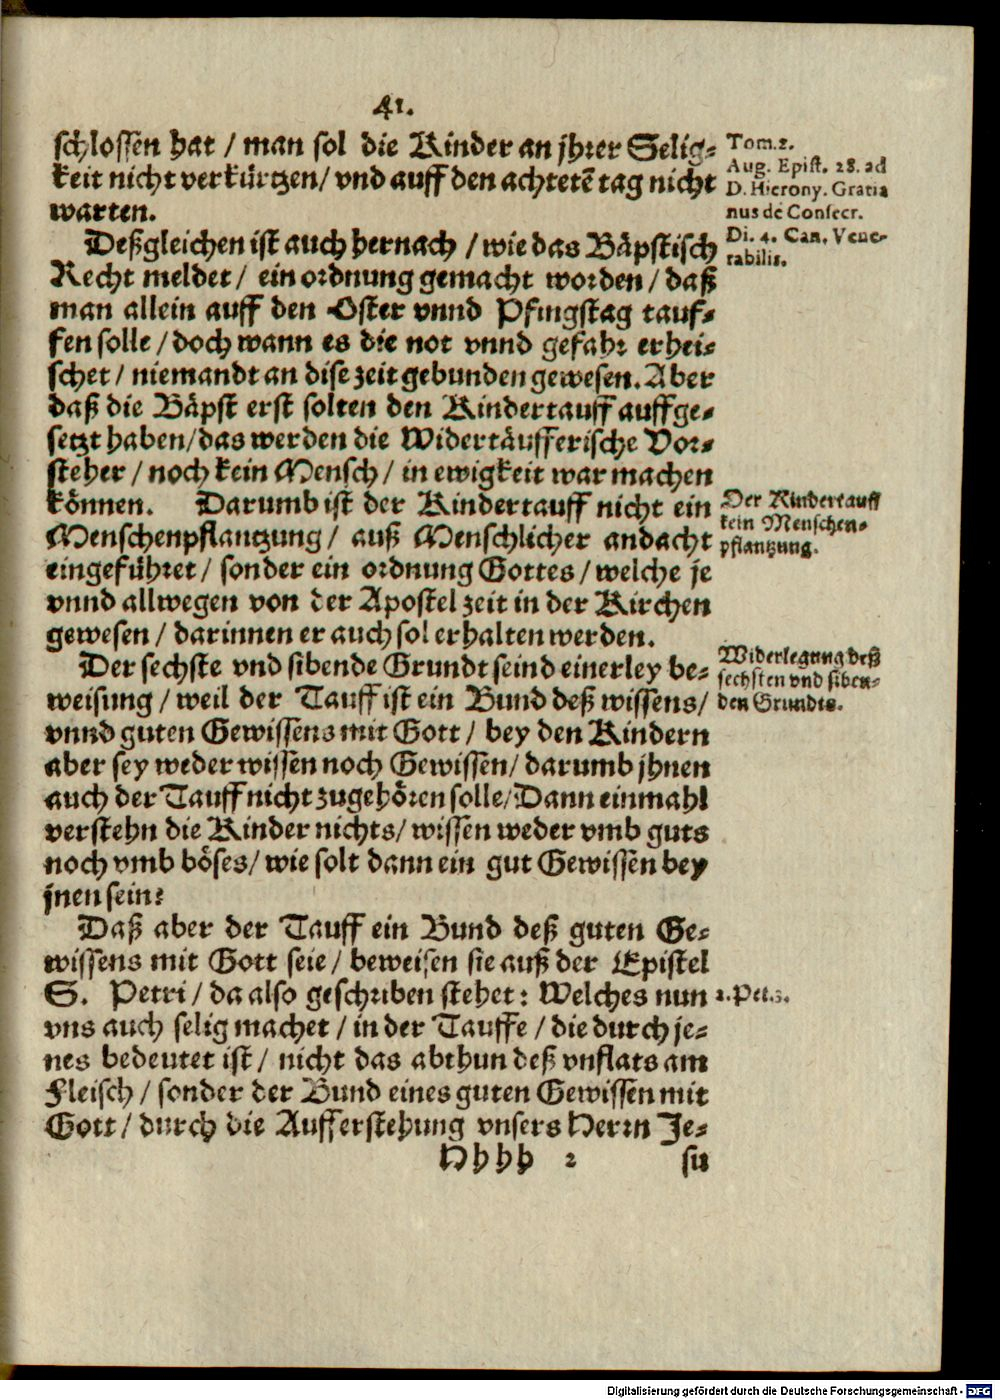 41.
schlossen hat / man sol die Kinder an jhrer Selig-
keit nicht verkürtzen/ vnd auff den achtetē tag nicht
warten.
Tom.2.
Aug. Epist. 28. ad
D. Hierony. Gratia
nus de Consecr.
Di. 4. Can. Vene-
rabilis.
Deßgleichen ist auch hernach / wie das Bäpstisch
Recht meldet / ein ordnung gemacht worden / daß
man allein auff den Oster vnnd Pfingstag tauf-
fen solle / doch wann es die not vnnd gefahr erhei-
schet / niemandt an dise zeit gebunden gewesen. Aber
daß die Bäpst erst solten den Kindertauff auffge-
setzt haben/ das werden die Widertäufferische Vor-
steher / noch kein Mensch / in ewigkeit war machen
können. Darumb ist der Kindertauff nicht ein
Menschenpflantzung / auß Menschlicher andacht
eingeführet / sonder ein ordnung Gottes / welche je
vnnd allwegen von der Apostel zeit in der Kirchen
gewesen / darinnen er auch sol erhalten werden.
Der Kindertauff
kein Menschen-
pflantzung.
Der sechste vnd sibende Grundt seind einerley be-
weisung / weil der Tauff ist ein Bund deß wissens /
vnnd guten Gewissens mit Gott / bey den Kindern
aber sey weder wissen noch Gewissen / darumb jhnen
auch der Tauff nicht zugehören solle / Dann einmahl
verstehn die Kinder nichts / wissen weder vmb guts
noch vmb böses / wie solt dann ein gut Gewissen bey
jnen sein?
Widerlegung deß
sechsten vnd siben-
den Grundts.
Daß aber der Tauff ein Bund deß guten Ge-
wissens mit Gott seie / beweisen sie auß der Epistel
S. Petri / da also geschriben stehet : Welches nun
vns auch selig machet / in der Tauffe / die durch je-
nes bedeutet ist / nicht das abthun deß vnflats am
Fleisch / sonder der Bund eines guten Gewissen mit
Gott / durch die Aufferstehung vnsers Herrn Je-
1. Pet.3.
Hhhh 2 su
Digitalisierung gefördert durch die Deutsche Forschungsgemeinschaft - DFG